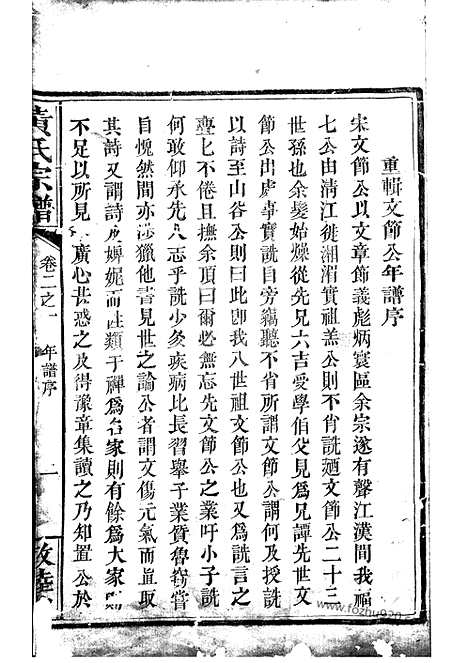 重輯文節公年譜序
宋文節公以文章節義彪炳寰區余宗遂有聲江漢間我福
七公由清江徙湘湄實祖羔公則不肖詵廼文節公二十三
世孫也余髮始燥從先兄六吉受學伯父見為兄譚先世文
節公出處事實詵自旁竊聽不省所謂文節公謂何及授詵
以詩至山谷公則曰此卽我八世祖文節公也又為詵言之
亹亹不倦且撫余頂曰爾必無忘先文節公之業吁小子詵
何敢仰承先人志乎詵少多疾病比長習舉子業質魯竊嘗
自愧然間亦涉獵他書見世之論公者謂文傷元氣而直取
其詩又謂詩尤婢妮而往類于禪為名家則有餘為大家則
不足以所見廣心甚惑之及得豫章集讀之乃知置公於
黃氏宗譜
卷二之一 年譜序
一
敦華
www.fozhu920.com